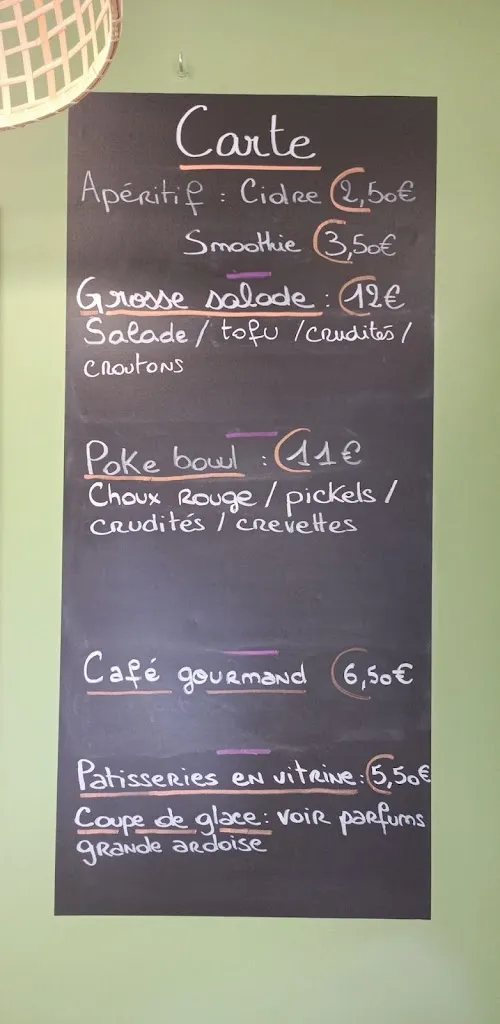 Carte
Apéritif : Cidre 2,50€
Smoothie 3,50€
Grosse salade : 12€
Salade / tofu / crudités /
croutons
Poke bowl : 11€
Choux Rouge / pickels /
crudités / crevettes
Café gourmand 6,50€
Patisseries en vitrine : 5,50€
Coupe de glace : voir parfums
grande ardoise